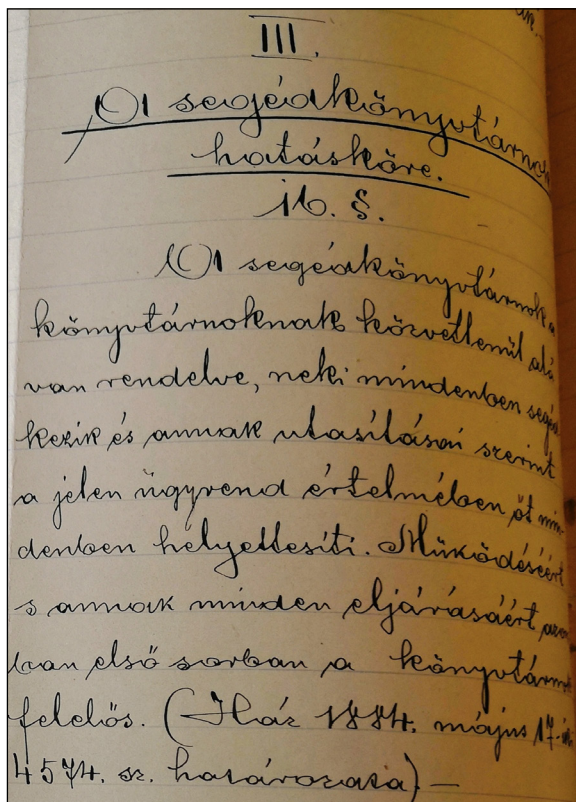 III.
A segédkönyvtárnok
hatásköre.
16. §.
A segédkönyvtárnok a
könyvtárnoknak közvetlenül alá
van rendelve, neki mindenben segéd
kezik és annak utasításai szerint
a jelen ügyrend értelmében őt min-
denben helyettesíti. Működéséért
s annak minden eljárásáért azon
ban első sorban a könyvtárnok
felelős. (Ház 1884. május 17-iki
4574. sz. határozata) —